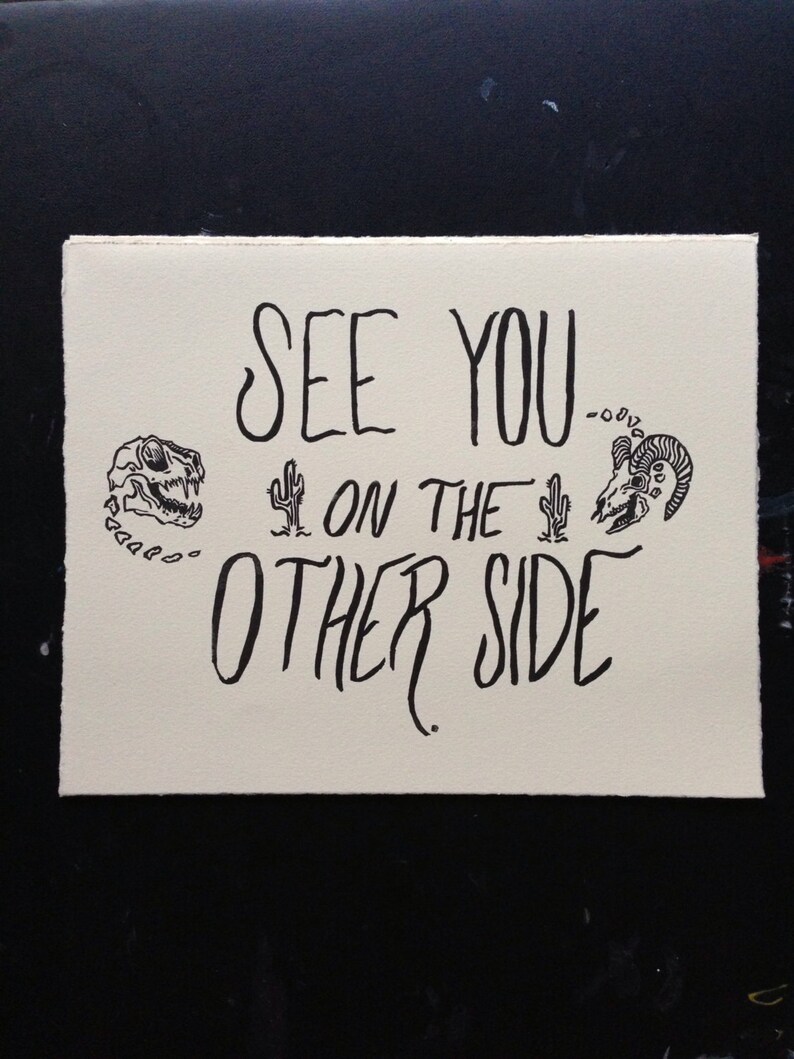 SEE YOU
ON THE
OTHER SIDE